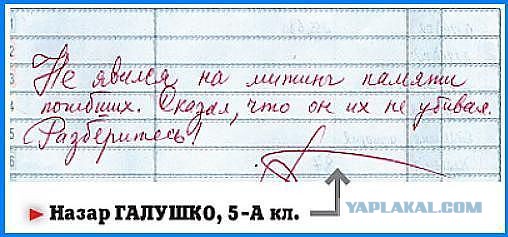 1
2
3
4
5
6
Не явился на митинг памяти
погибших. Сказал, что он их не убивал.
Разберитесь!
► Назар ГАЛУШКО, 5-А кл.
YAPLAKAL.COM